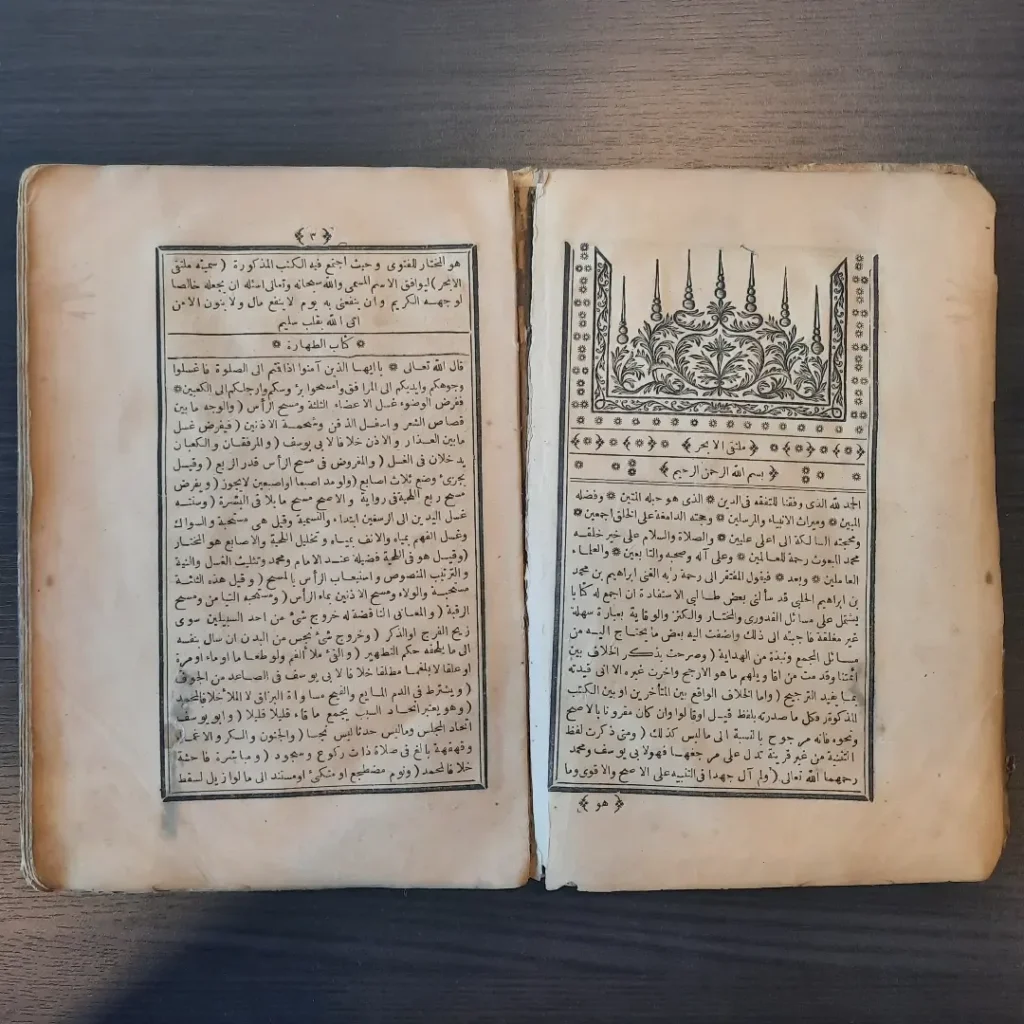 ﴿ ملتقى الابحر ﴾
﴿ بسم الله الرحمن الرحيم ﴾
الحمد لله الذى وفقنا للتفقه فى الدين * الذى هو حبله المتين * وفضله
المبين * وميراث الانبياء والمرسلين * وحجته الدامغة على الخلق اجمعين *
ومحجته السالكة الى اعلى عليين * والصلاة والسلام على خير خلقه
محمد المبعوث رحمة للعالمين * وعلى آله وصحبه والتابعين * والعلماء
العاملين * وبعد * فيقول المفتقر الى رحمة ربه الغنى ابراهيم بن محمد
بن ابراهيم الحلبى قد سألنى بعض طالبى الاستفادة ان اجمع له كتابا
يشتمل على مسائل القدورى والمختار والكنز والوقاية بعبارة سهلة
غير مغلقة فاجبته الى ذلك واضفت اليه بعض ما يحتاج اليه من
مسائل المجمع ونبذة من الهداية ( وصرحت بذكر الخلاف بين
ائمتنا وقدمت من اقاويلهم ما هو الارجح واخرت غيره الا ان قيدته
بما يفيد الترجيح ( واما الخلاف الواقع بين المتأخرين او بين الكتب
المذكورة فكل ما صدرته بلفظ قيل او قالوا وان كان مقرونا بالاصح
ونحوه فانه مرجوح بالنسبة الى ما ليس كذلك ( ومتى ذكرت لفظ
التثنية من غير قرينة تدل على مرجعهما فهو لابى يوسف ومحمد
رحمهما الله تعالى ( ولم آل جهدا فى التنبيه على الاصح والاقوى وما
﴿ هو ﴾
﴿ ٣ ﴾
هو المختار للفتوى وحيث اجتمع فيه الكتب المذكورة ( سميته ملتقى
الابحر ) ليوافق الاسم المسمى والله سبحانه وتعالى اسئله ان يجعله خالصا
لوجهه الكريم وان ينفعنى به يوم لا ينفع مال ولا بنون الا من
اتى الله بقلب سليم
* كتاب الطهارة *
قال الله تعالى * يا ايها الذين آمنوا اذا قمتم الى الصلوة فاغسلوا
وجوهكم وايديكم الى المرافق وامسحوا برؤسكم وارجلكم الى الكعبين *
ففرض الوضوء غسل الاعضاء الثلثة ومسح الرأس ( والوجه ما بين
قصاص الشعر واسفل الذقن وشحمة الاذنين ( فيفرض غسل
ما بين العذار والاذن خلافا لابى يوسف ( والمرفقان والكعبان
يدخلان فى الغسل ( والمفروض فى مسح الرأس قدر الربع ( وقيل
يجزئ وضع ثلاث اصابع ( ولو مد اصبعا او اصبعين لا يجوز ( ويفرض
مسح ربع اللحية فى رواية والاصح مسح ما يلاقى البشرة ( وسننه
غسل اليدين الى الرسغين ابتداء والتسمية وقيل هى مستحبة والسواك
وغسل الفم بمياه والانف بمياه وتخليل اللحية والاصابع هو المختار
( وقيل هو فى اللحية فضيلة عند الامام ومحمد وتثليث الغسل والنية
والترتيب المنصوص واستيعاب الرأس بالمسح ( وقيل هذه الثلثة
مستحبة والولاء ومسح الاذنين بماء الرأس ( ومستحبه التيامن ومسح
الرقبة ( والمعانى الناقضة له خروج شئ من احد السبيلين سوى
ريح الفرج او الذكر ( وخروج شئ نجس من البدن ان سال بنفسه
الى ما يلحقه حكم التطهير ( والقئ ملأ الفم ولو طعاما او ماء او مرة
او علقا لا بلغما مطلقا خلافا لابى يوسف فى الصاعد من الجوف
( ويشترط فى الدم المايع والقيح مساواة البزاق لا الملأ خلافا لمحمد
( وهو يعتبر اتحاد السبب بجمع ما قاء قليلا قليلا ( وابو يوسف
اتحاد المجلس وما ليس حدثا ليس نجسا ( والجنون والسكر والاغماء
وقهقهة بالغ فى صلاة ذات ركوع وسجود ( ومباشرة فاحشة
خلافا لمحمد ( ونوم مضطجع او متكئ او مستند الى ما لو ازيل لسقط